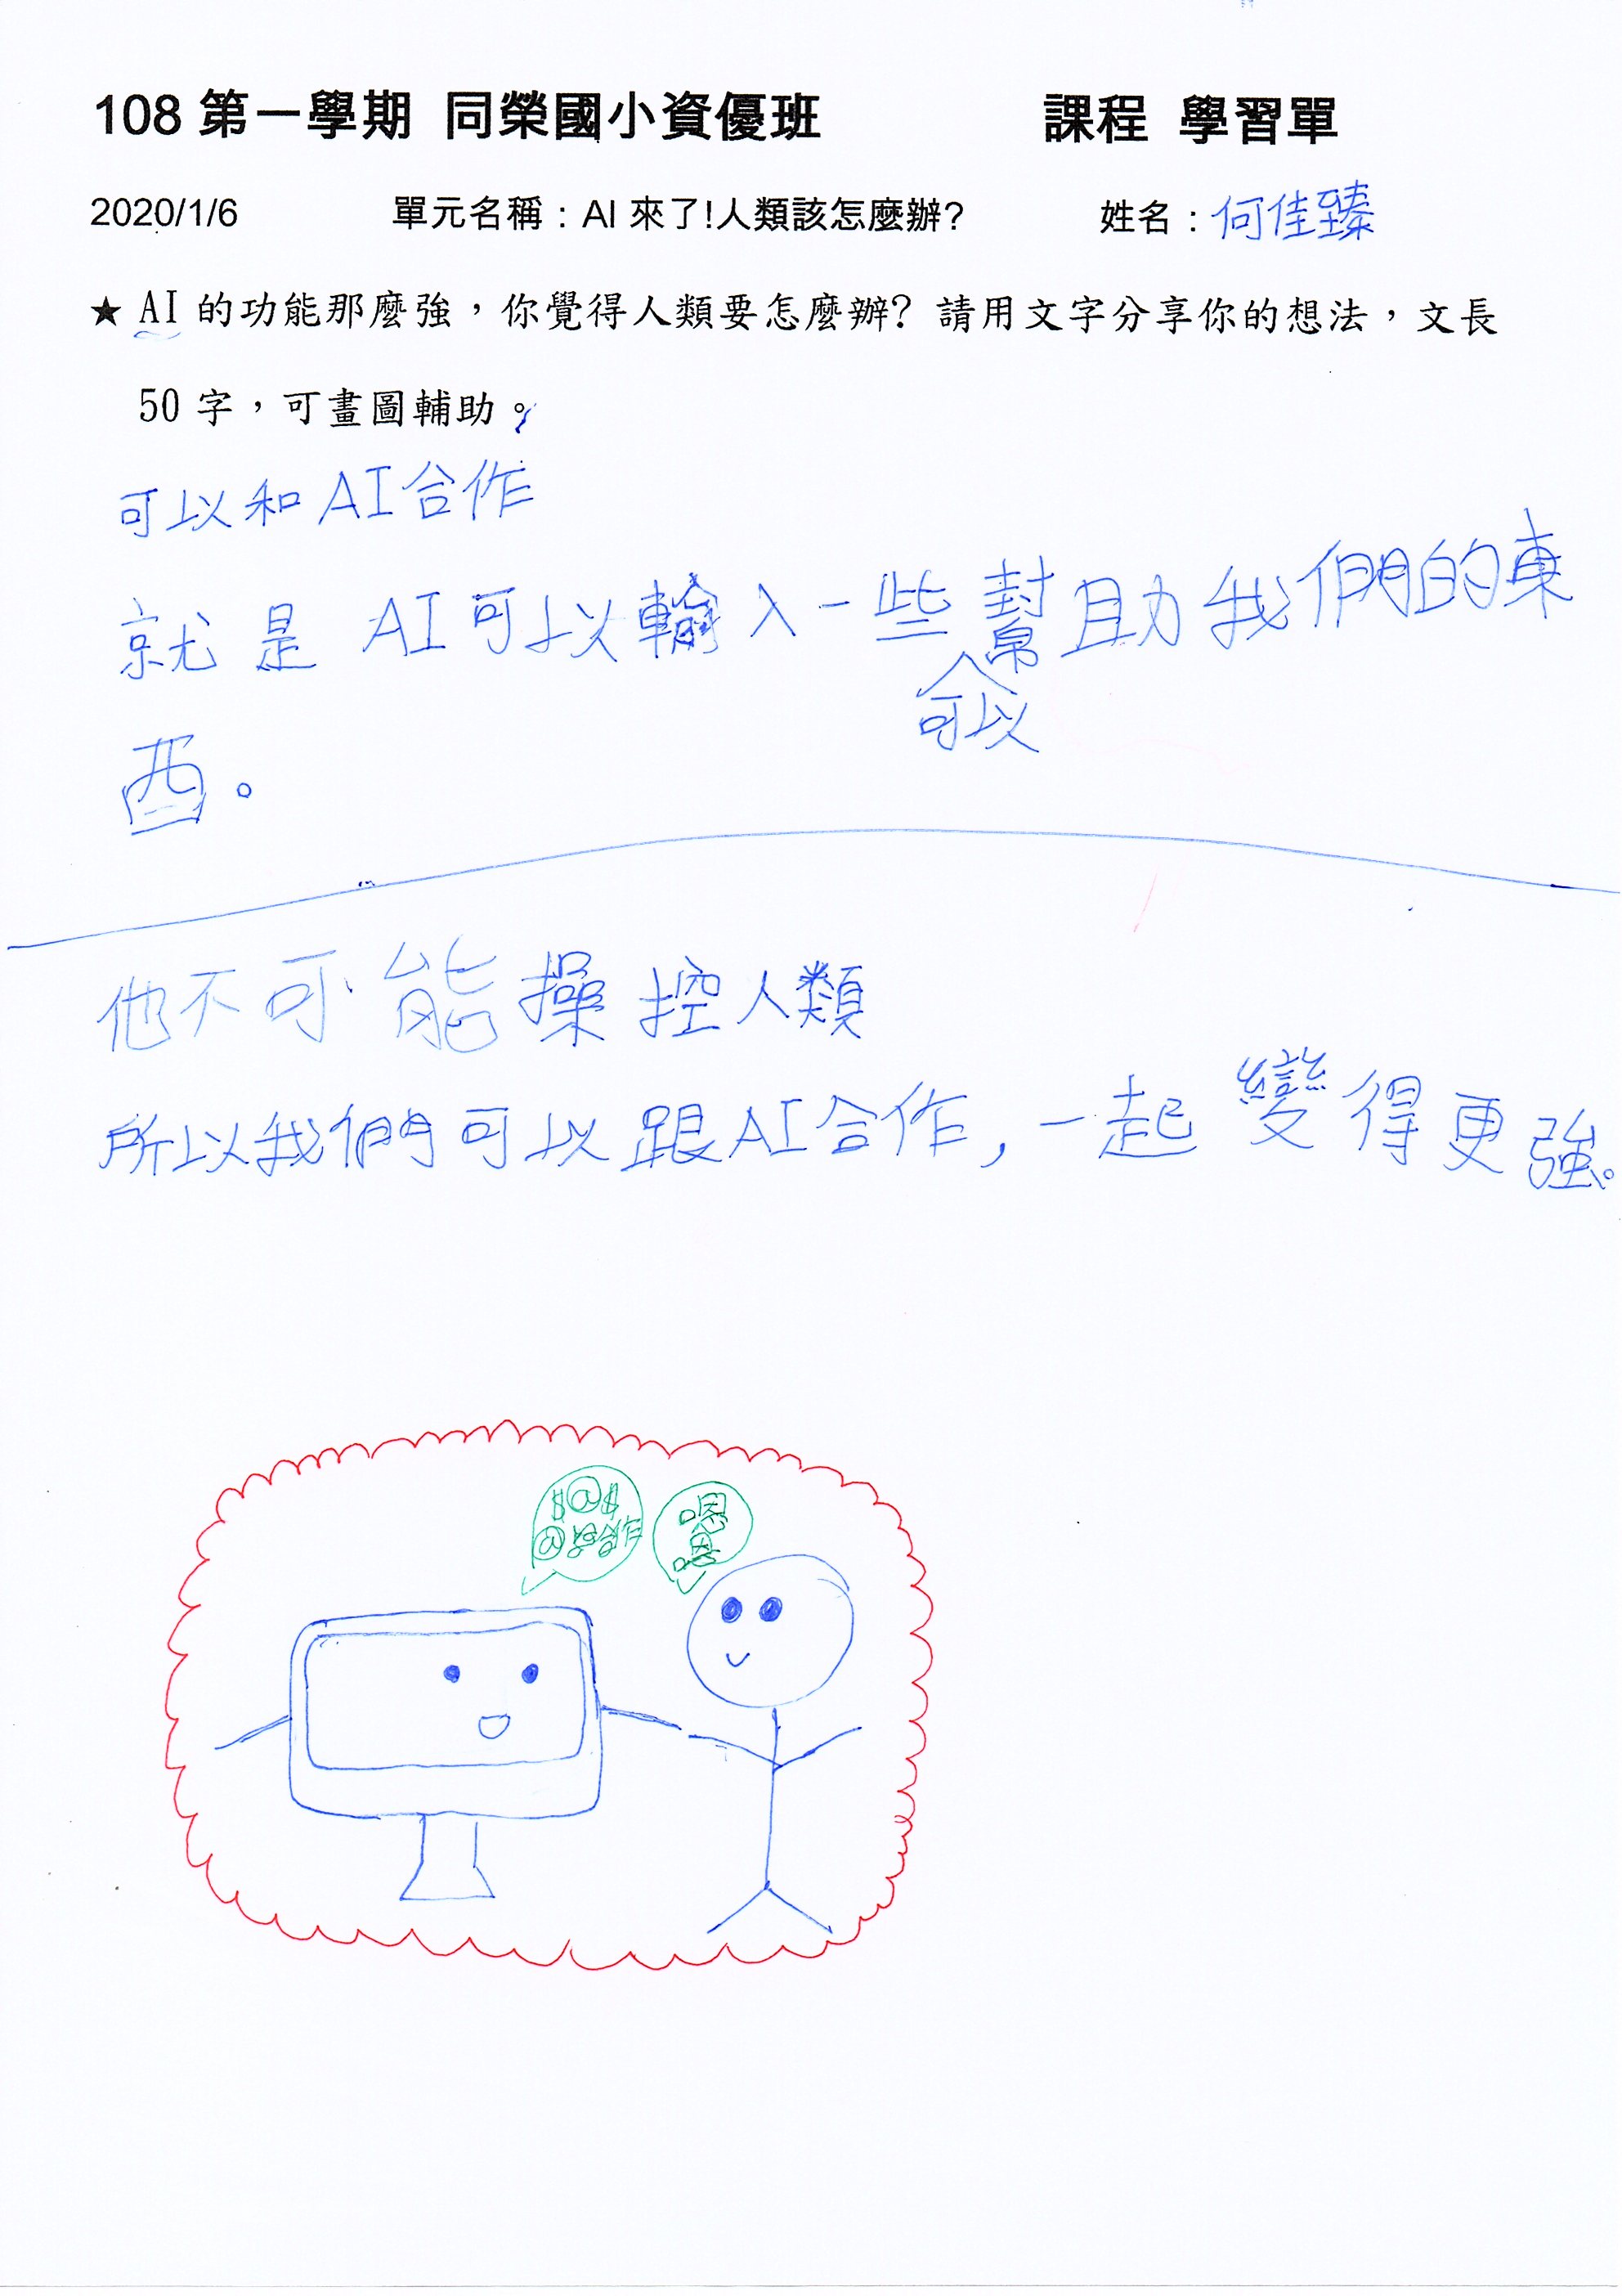 108 第一學期 同榮國小資優班 課程 學習單
2020/1/6 單元名稱：AI 來了!人類該怎麼辦? 姓名：何佳臻
★ AI 的功能那麼強，你覺得人類要怎麼辦? 請用文字分享你的想法，文長
50 字，可畫圖輔助。
可以和AI合作
就是 AI可以輸入一些可以幫助我們的東
西。
他不可能操控人類
所以我們可以跟AI合作，一起變得更強。
嗯嗯